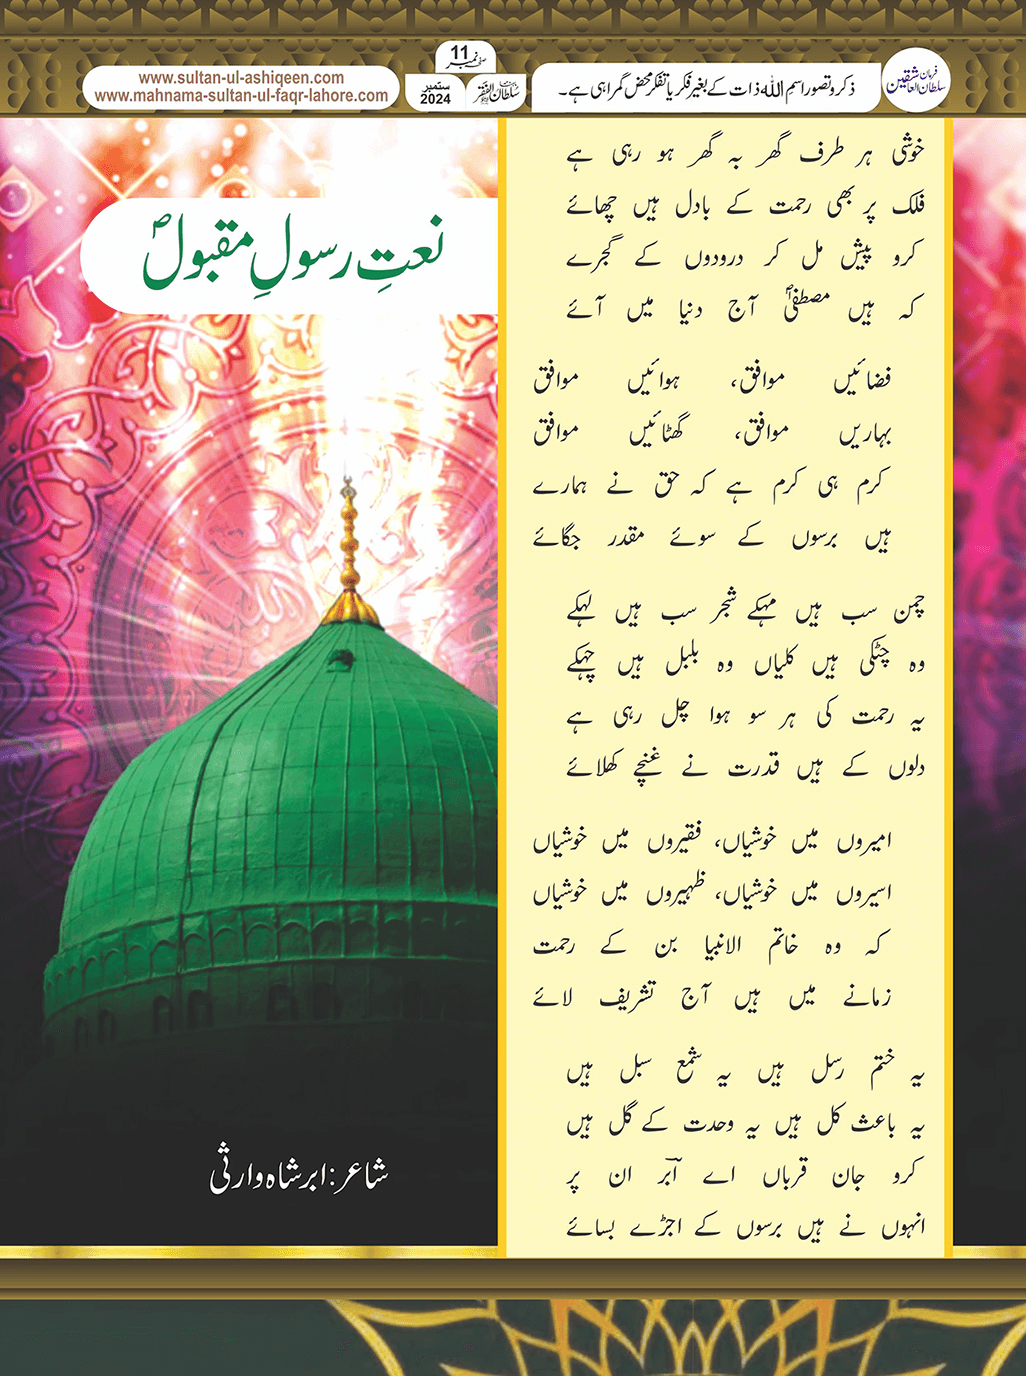 www.sultan-ul-ashiqeen.com
www.mahnama-sultan-ul-faqr-lahore.com
صفحہ نمبر 11
ستمبر 2024
ماہنامہ سلطان الفقر لاہور
ذکر و تصور اسمِ اللہ ذات کے بغیر فکر یا تفکر محض گمراہی ہے۔
فرمان سلطان العاشقین
نعتِ رسولِ مقبولؐ
خوشی ہر طرف گھر بہ گھر ہو رہی ہے
فلک پر بھی رحمت کے بادل ہیں چھائے
کرو پیش مل کر درودوں کے گجرے
کہ ہیں مصطفیؐ آج دنیا میں آئے
فضائیں موافق، ہوائیں موافق
بہاریں موافق، گھٹائیں موافق
کرم ہی کرم ہے کہ حق نے ہمارے
ہیں برسوں کے سوئے مقدر جگائے
چمن سب ہیں مہکے شجر سب ہیں لہکے
وہ چٹکی ہیں کلیاں وہ بلبل ہیں چہکے
یہ رحمت کی ہر سو ہوا چل رہی ہے
دلوں کے ہیں قدرت نے غنچے کھلائے
امیروں میں خوشیاں، فقیروں میں خوشیاں
اسیروں میں خوشیاں، ظہیروں میں خوشیاں
کہ وہ خاتم الانبیا بن کے رحمت
زمانے میں ہیں آج تشریف لائے
یہ ختم رسل ہیں یہ شمع سبل ہیں
یہ باعث کل ہیں یہ وحدت کے گل ہیں
کرو جان قرباں اے ابؔر ان پر
انہوں نے ہیں برسوں کے اجڑے بسائے
شاعر: ابر شاہ وارثی